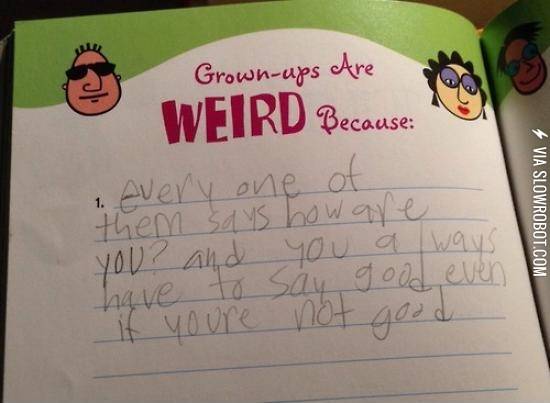 Grown-ups Are
WEIRD Because:
1. every one of
them says how are
you? and you always
have to say good even
if youre not good
VIA SLOWROBOT.COM